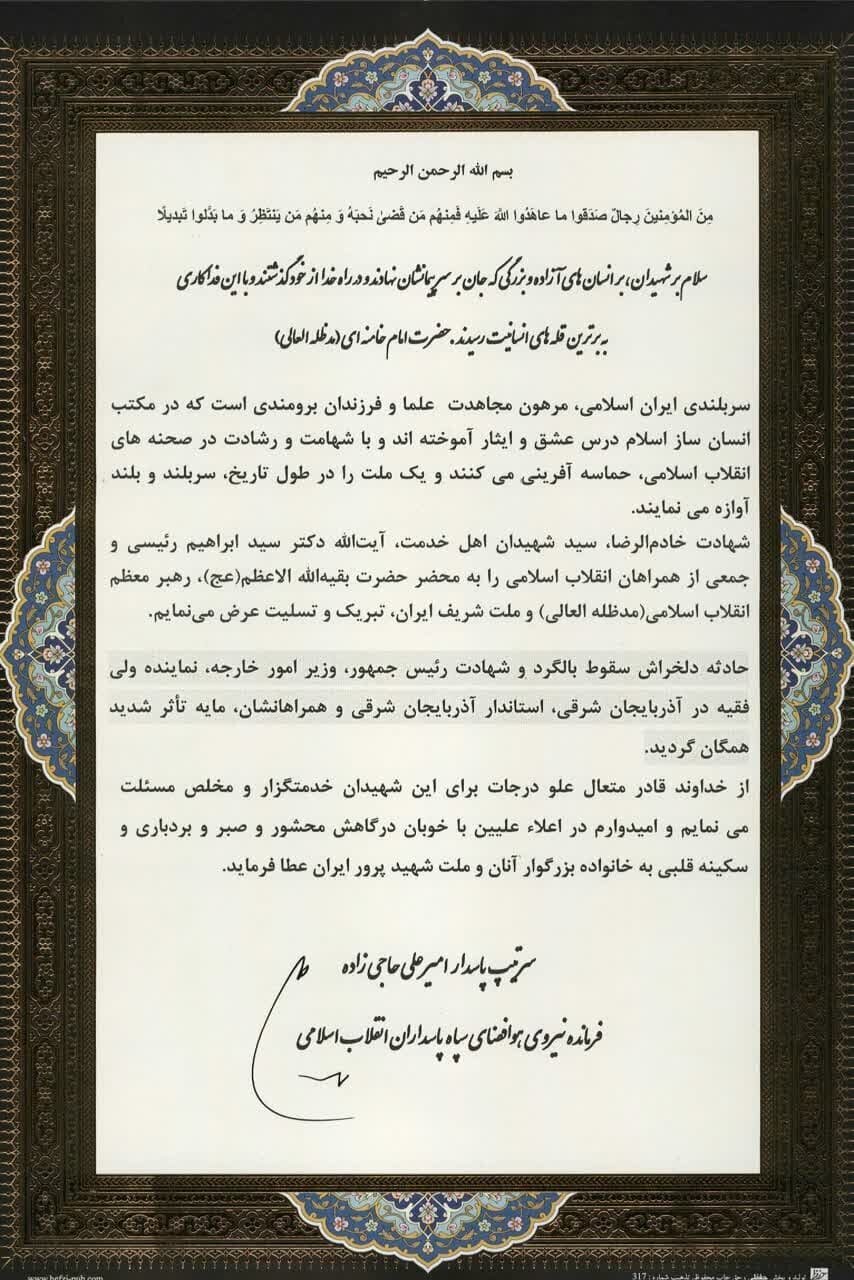 بسم الله الرحمن الرحیم
مِنَ المُؤمِنینَ رِجالٌ صَدَقوا ما عاهَدُوا اللهَ عَلَیهِ فَمِنهُم مَن قَضىٰ نَحبَهُ وَ مِنهُم مَن یَنتَظِرُ وَ ما بَدَّلوا تَبدیلًا
سلام بر شهیدان، بر انسان های آزاده و بزرگی که جان بر سر پیمانشان نهادند و در راه خدا از خود گذشتند و با این فداکاری
به برترین قله های انسانیت رسیدند. حضرت امام خامنه ای (مدظله العالی)
سربلندی ایران اسلامی، مرهون مجاهدت علما و فرزندان برومندی است که در مکتب
انسان ساز اسلام درس عشق و ایثار آموخته اند و با شهامت و رشادت در صحنه های
انقلاب اسلامی، حماسه آفرینی می کنند و یک ملت را در طول تاریخ، سربلند و بلند
آوازه می نمایند.
شهادت خادم‌الرضا، سید شهیدان اهل خدمت، آیت‌الله دکتر سید ابراهیم رئیسی و
جمعی از همراهان انقلاب اسلامی را به محضر حضرت بقیه‌الله الاعظم(عج)، رهبر معظم
انقلاب اسلامی(مدظله العالی) و ملت شریف ایران، تبریک و تسلیت عرض می‌نمایم.
حادثه دلخراش سقوط بالگرد و شهادت رئیس جمهور، وزیر امور خارجه، نماینده ولی
فقیه در آذربایجان شرقی، استاندار آذربایجان شرقی و همراهانشان، مایه تأثر شدید
همگان گردید.
از خداوند قادر متعال علو درجات برای این شهیدان خدمتگزار و مخلص مسئلت
می نمایم و امیدوارم در اعلاء علیین با خوبان درگاهش محشور و صبر و بردباری و
سکینه قلبی به خانواده بزرگوار آنان و ملت شهید پرور ایران عطا فرماید.
سرتیپ پاسدار امیرعلی حاجی زاده
فرمانده نیروی هوافضای سپاه پاسداران انقلاب اسلامی
317